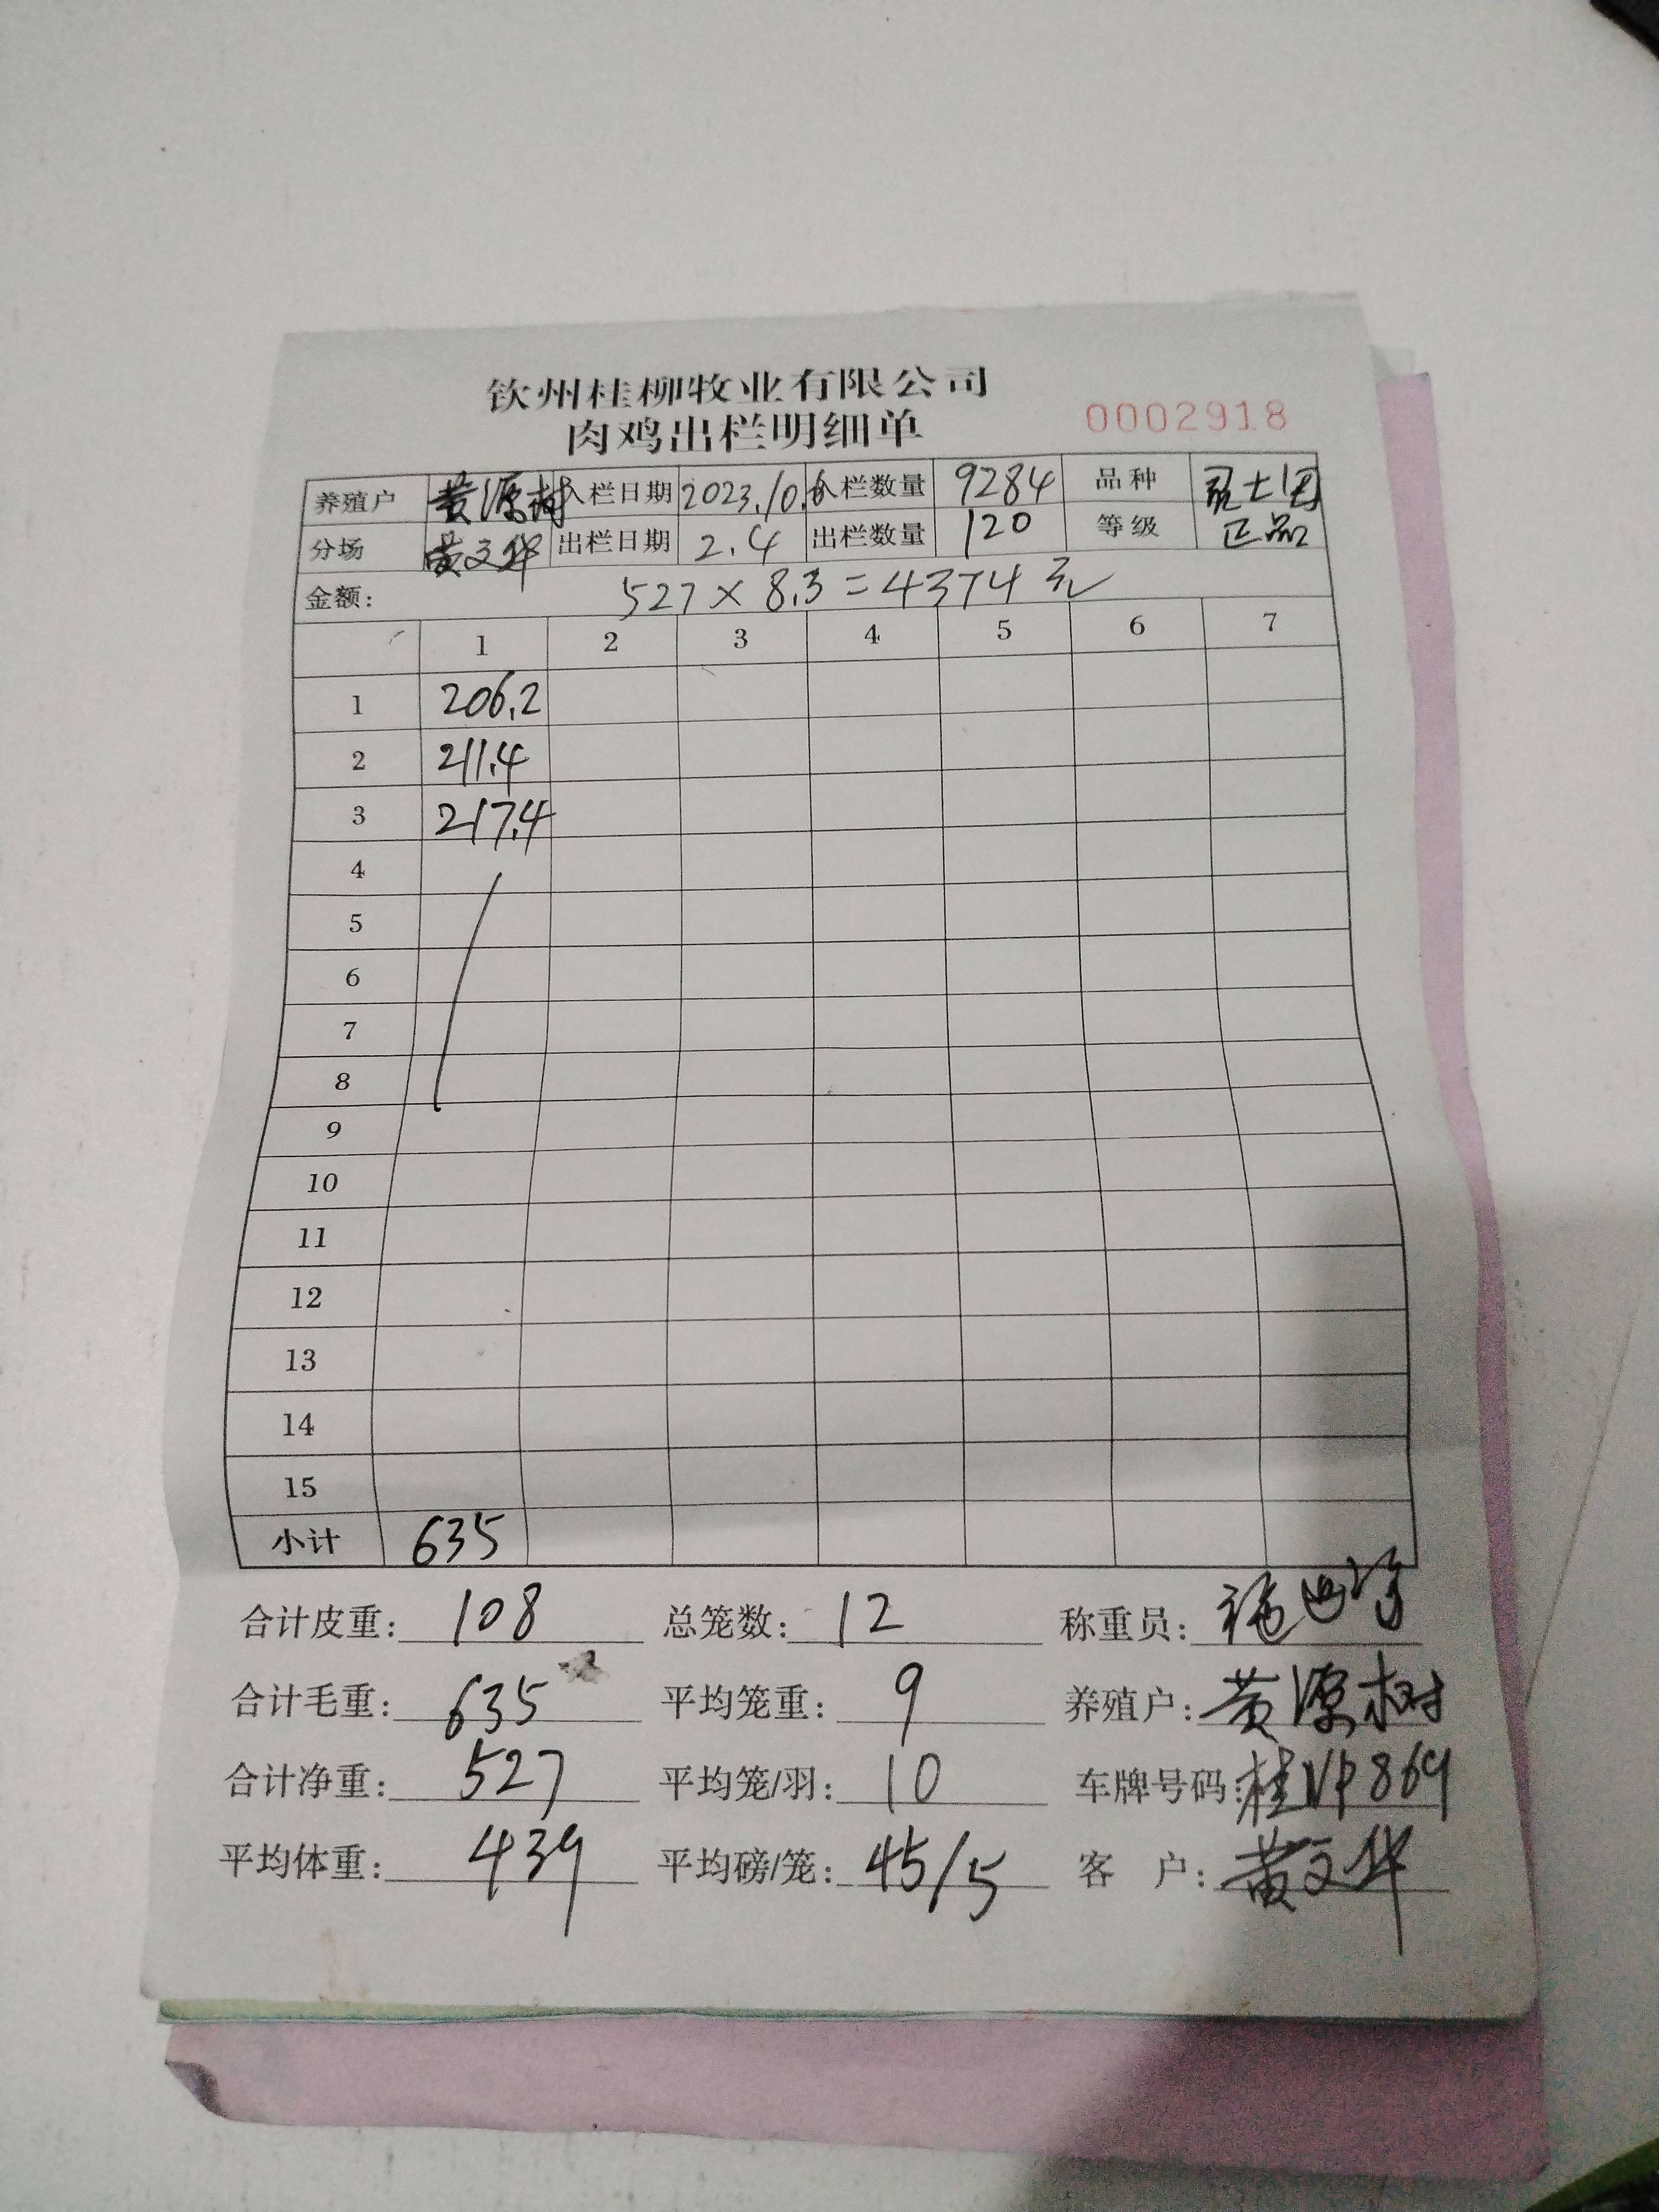 钦州桂柳牧业有限公司
肉鸡出栏明细单
0002918
养殖户 黄源树 入栏日期 2023.10.6 入栏数量 9284 品种
分场 黄文华 出栏日期 2.4 出栏数量 120 等级 正品
金额: 527×8.3=4374元
1 2 3 4 5 6 7
1 206.2
2 211.4
3 217.4
4
5
6
7
8
9
10
11
12
13
14
15
小计 635
合计皮重: 108 总笼数: 12 称重员:
合计毛重: 635 平均笼重: 9 养殖户: 黄源树
合计净重: 527 平均笼/羽: 10 车牌号码: 桂NP869
平均体重: 439 平均磅/笼: 45/5 客 户: 黄文华